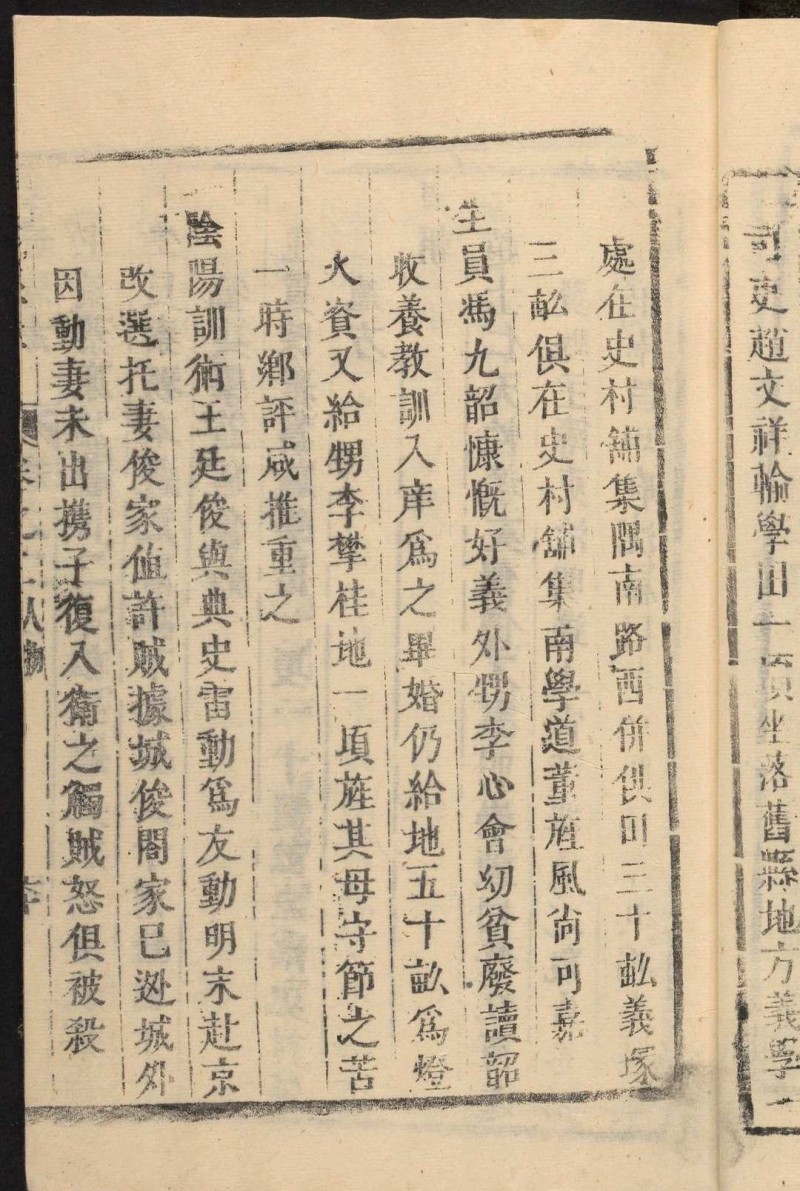 司吏趙文祥輸學田一頃坐落舊縣地方義學一
處在史村舖集隅南路西併供田三十畝義塚
三畝俱在史村舖集南學道董旌風尚可嘉
生員馮九韶慷慨好義外甥李心會幼貧廢讀韶
收養教訓入庠爲之畢婚仍給地五十畝爲燈
火資又給甥李攀桂地一頃旌其母守節之苦
一時鄉評咸推重之
陰陽訓術王廷俊與典史雷動爲友動明末赴京
改選托妻俊家値許賊據城俊閤家已迯城外
因動妻未出携子復入衛之觸賊怒俱被殺
卷之二人物